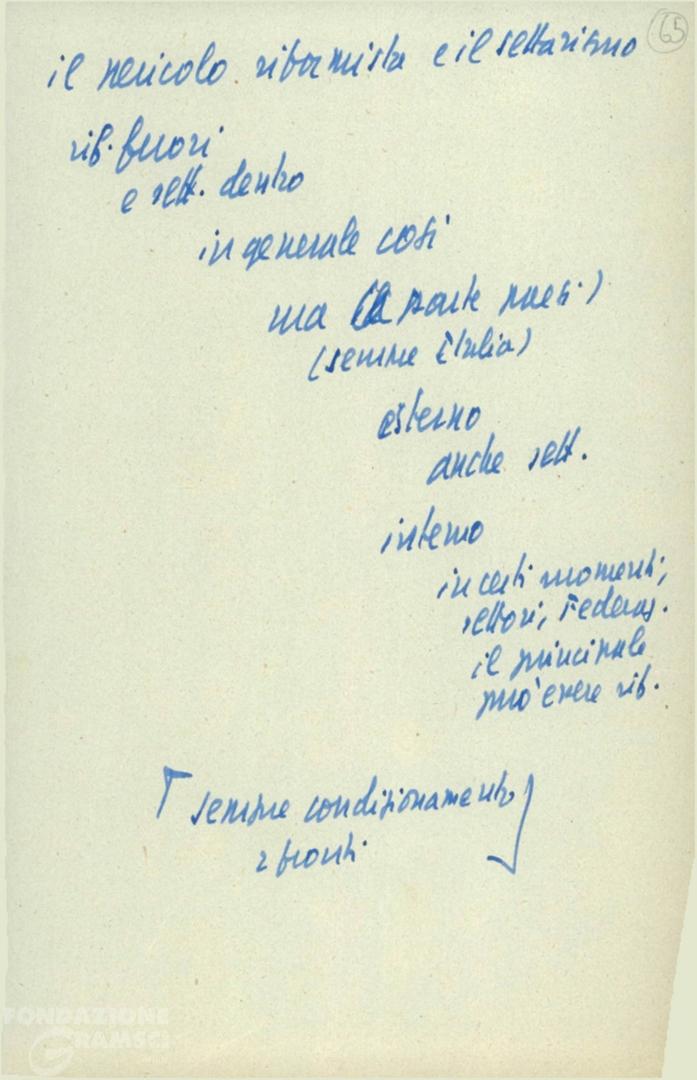 65
il pericolo riformista e il settarismo
rif. fuori
e sett. dentro
in generale così
ma (a parte paesi)
(sempre Italia)
esterno
anche sett.
interno
in certi momenti,
settori, Federaz.
il principale
può essere rif.
sempre condizionamento
2 fronti
FONDAZIONE
GRAMSCI